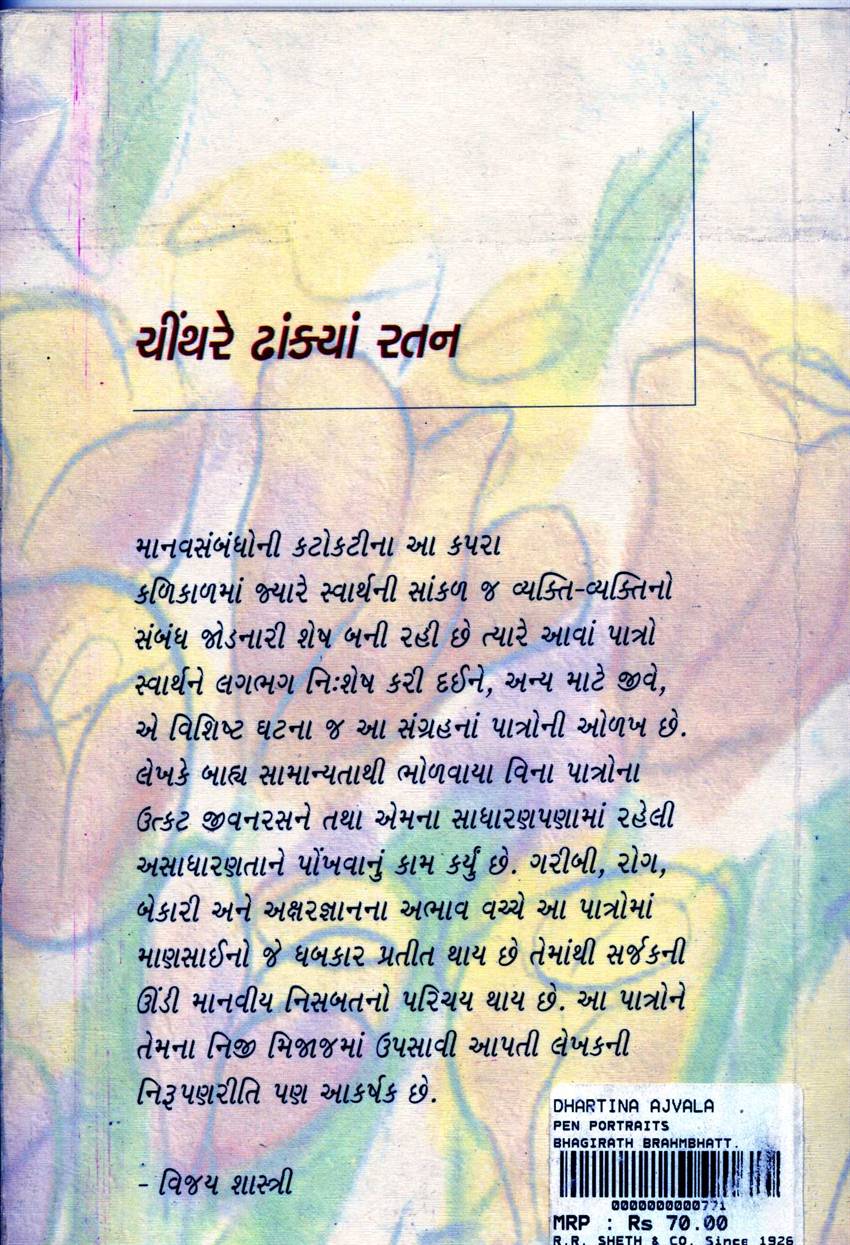 ચીંથરે ઢાંક્યાં રતન
માનવસંબંધોની કટોકટીના આ કપરા
કળિકાળમાં જ્યારે સ્વાર્થની સાંકળ જ વ્યક્તિ-વ્યક્તિનો
સંબંધ જોડનારી શેષ બની રહી છે ત્યારે આવાં પાત્રો
સ્વાર્થને લગભગ નિઃશેષ કરી દઈને, અન્ય માટે જીવે,
એ વિશિષ્ટ ઘટના જ આ સંગ્રહનાં પાત્રોની ઓળખ છે.
લેખકે બાહ્ય સામાન્યતાથી ભોળવાયા વિના પાત્રોના
ઉત્કટ જીવનરસને તથા એમના સાધારણપણામાં રહેલી
અસાધારણતાને પોંખવાનું કામ કર્યું છે. ગરીબી, રોગ,
બેકારી અને અક્ષરજ્ઞાનના અભાવ વચ્ચે આ પાત્રોમાં
માણસાઈનો જે ધબકાર પ્રતીત થાય છે તેમાંથી સર્જકની
ઊંડી માનવીય નિસબતનો પરિચય થાય છે. આ પાત્રોને
તેમના નિજી મિજાજમાં ઉપસાવી આપતી લેખકની
નિરૂપણરીતિ પણ આકર્ષક છે.
- વિજય શાસ્ત્રી
DHARTINA AJVALA .
PEN PORTRAITS
BHAGIRATH BRAHMBHATT.
0000000000771
MRP : Rs 70.00
R.R. SHETH & CO. Since 1926